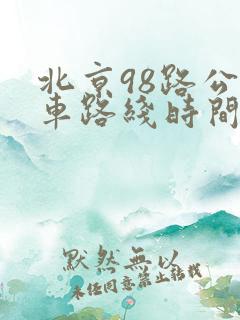 北京98路公
車路綫時間
默然無以
未经同意禁止转载